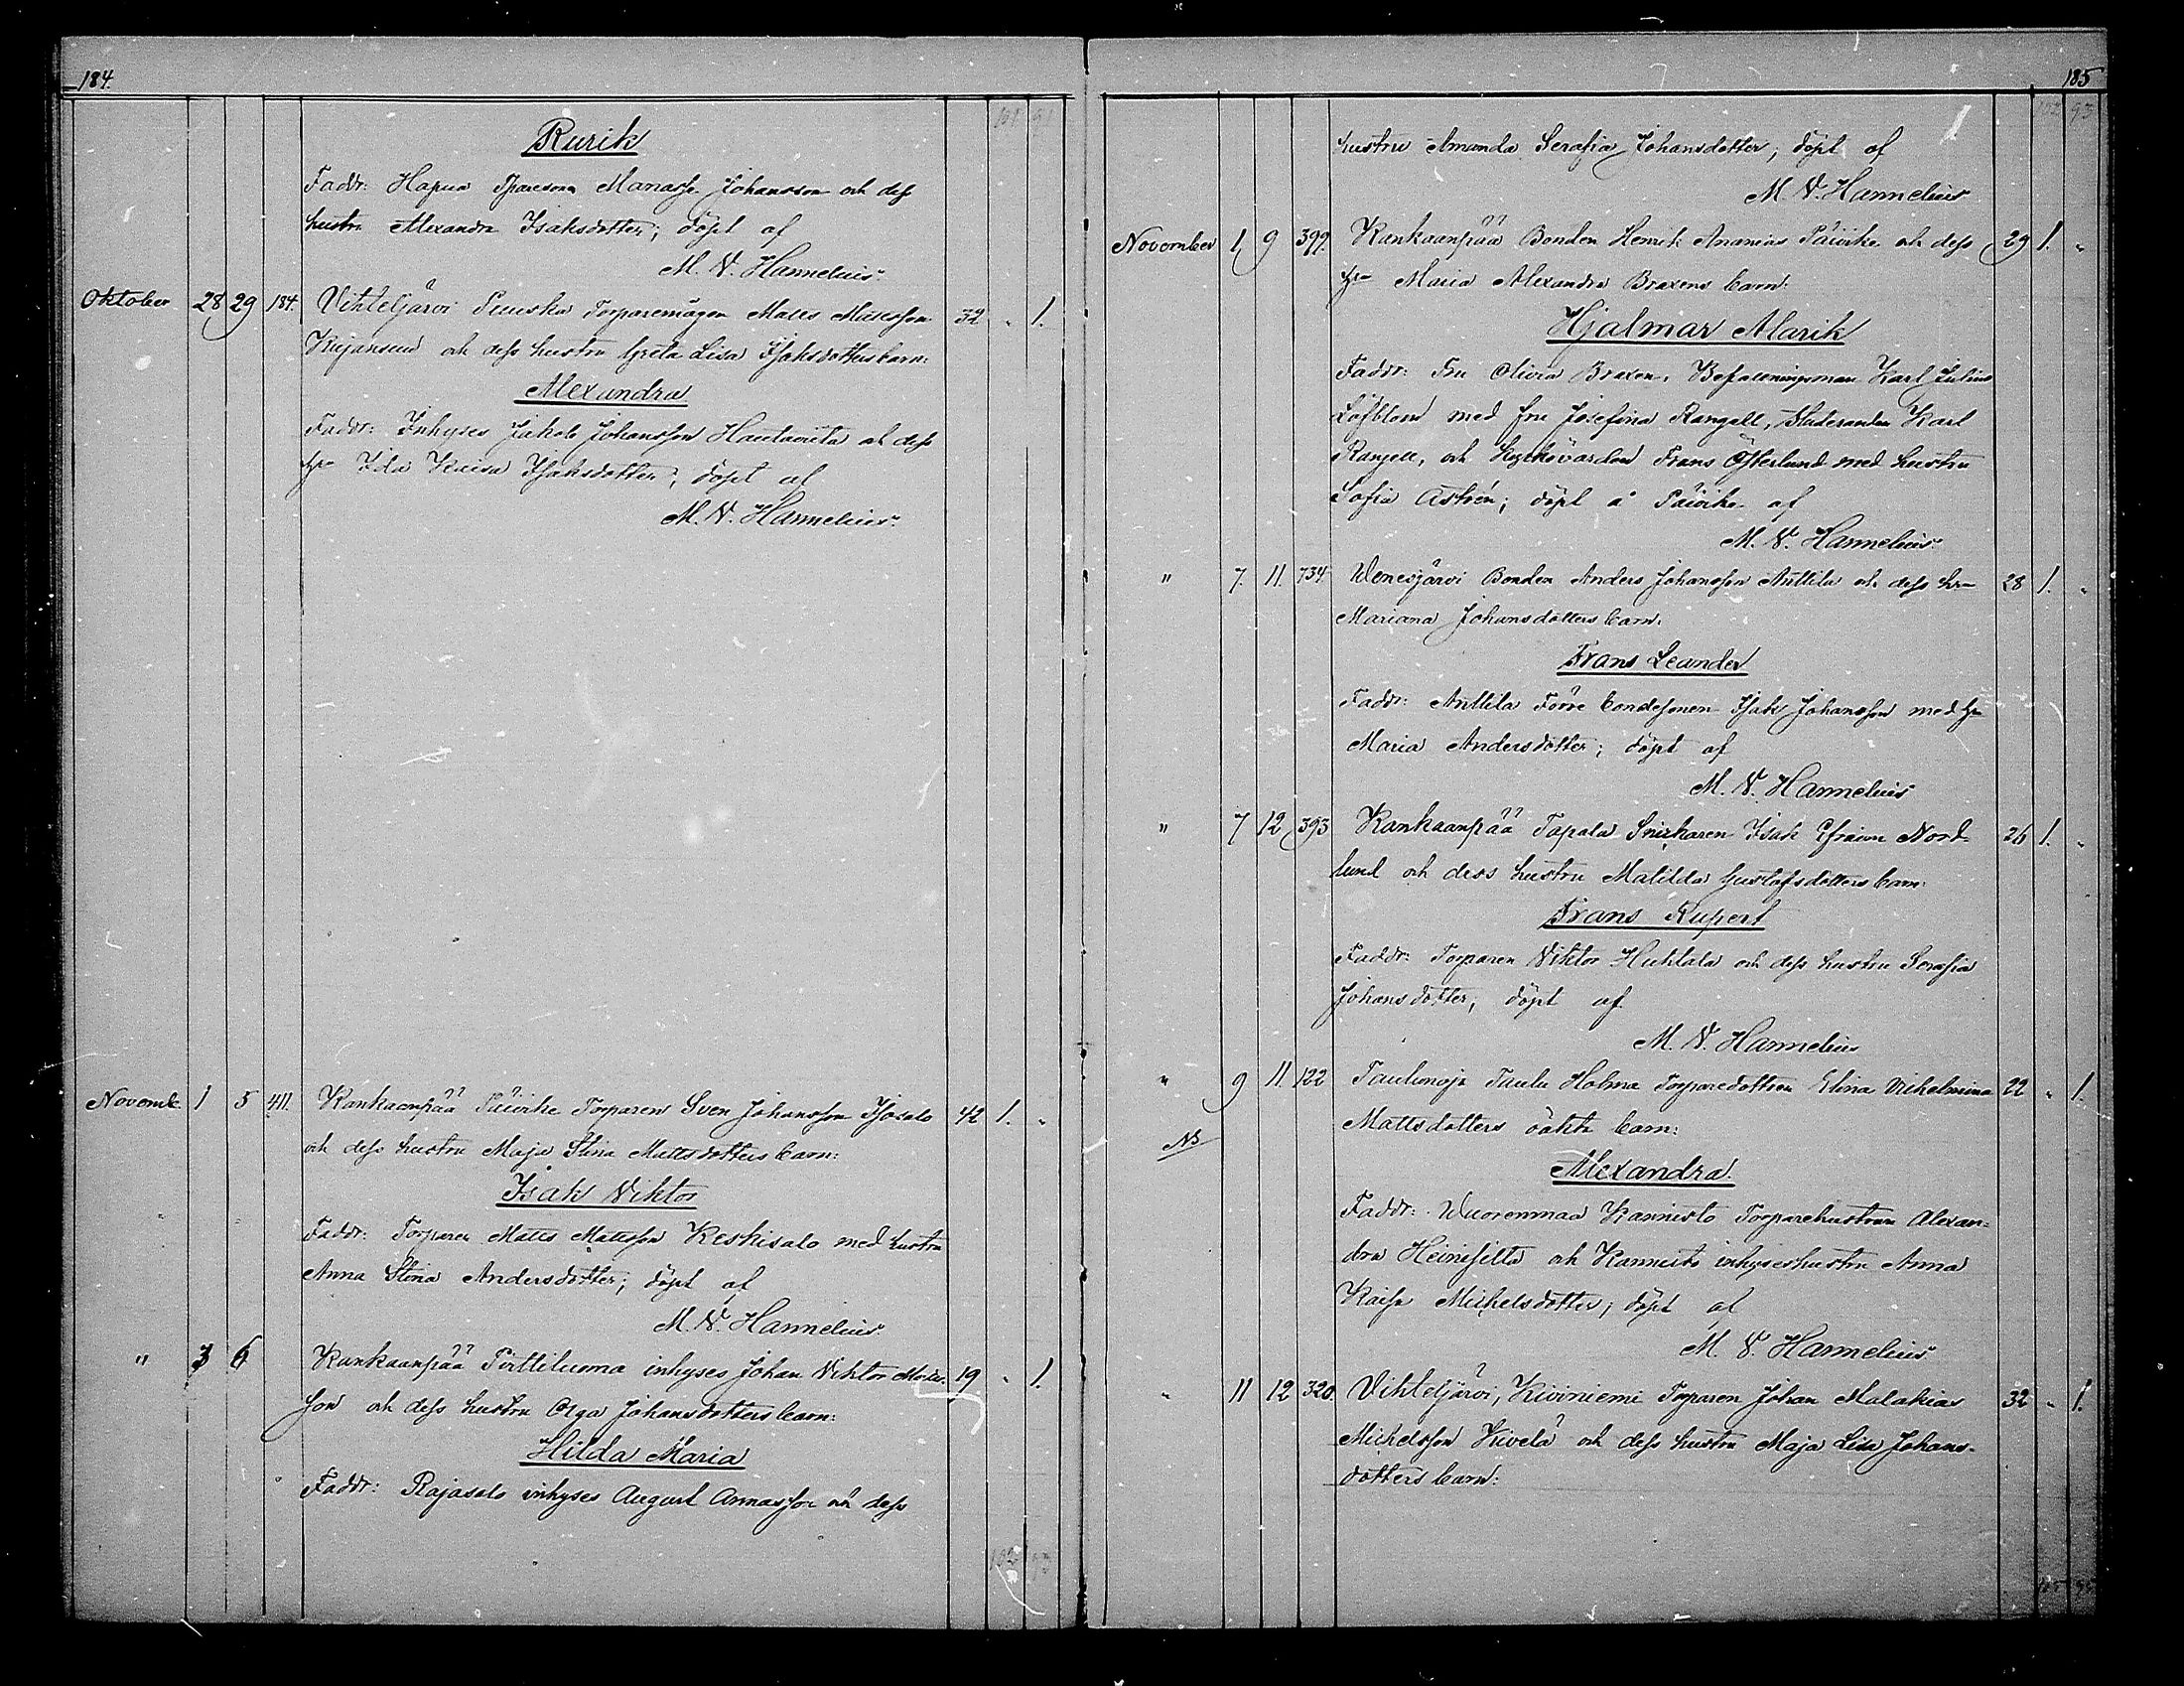 184.
101 91
Rurik
Faddr: Hapua Manasse Johansson och dess
hustru Alexandra Isaksdotter; döpt af
M. V. Hannelius.
Oktober 28 29 184. Vihteljärvi Torparemågen Matts Mattsson 32 " 1.
och dess hustru Greta Lisa Isaksdotters barn:
Alexandra
Faddr: Inhyses Jakob Johansson Hautaviita och dess
hu Ida Kaisa Isaksdotter; döpt af
M. V. Hannelius.
Novemb. 1 5 411. Kankaanpää Päivike Torparen Sven Johansson Isosalo 42 1. "
och dess hustru Maja Stina Mattsdotters barn:
Isak Viktor
Faddr: Torparen Matts Mattsson Keskisalo med hustru
Anna Stina Andersdotter; döpt af
M. V. Hannelius.
" 3 6 Kankaanpää Pirttiluoma inhyses Johan Viktor Matts- 19 " 1.
son och dess hustru Olga Johansdotters barn:
Hilda Maria
Faddr: Rajasalo inhyses August Annasson och dess
102 93
185
102 93
hustru Amanda Serafia Johansdotter; döpt af
M. V. Hannelius
November 1 9 399. Kankaanpää Bonden Henrik Ananias Päivike och dess 29 1. "
hu Maria Alexandra Braxens barn:
Hjalmar Alarik
Faddr: Fru Olivia Braxen, Befallningsman Karl Julius
Löfblom med fru Josefina Rangell, Studeranden Karl
Rangell, och Kyrkovärden Frans Österlund med hustru
Sofia Astrén; döpt å Päivike af
M. V. Hannelius.
" 7. 11. 734 Wenesjärvi Bonden Anders Johansson Anttila och dess hu 28 1. "
Mariana Johansdotters barn:
Frans Leander
Faddr: Anttila Förre bondesonen Isak Johansson med hu
Maria Andersdotter; döpt af
M. V. Hannelius
" 7 12 393 Kankaanpää Tapala Snickaren Isak Efraim Nord- 26 1. "
lund och dess hustru Matilda Gustafsdotters barn:
Frans Rupert
Faddr: Torparen Viktor Huhtala och dess hustru Serafia
Johansdotter, döpt af
M. V. Hannelius
" 9 11 122 Taulunoja Taulu Holma Torparedottren Elina Vilhelmina 22 " 1.
NB Mattsdotters oäkta barn:
Alexandra.
Faddr: Wuorenmaa Kannisto Torparehustrun Alexan-
dra Heinisilta och Kannisto inhyseshustru Anna
Kaisa Michelsdotter; döpt af
M. V. Hannelius
" 11 12 320. Vihteljärvi, Kiviniemi Torparen Johan Malakias 32 " 1.
Michelsson Kivelä och dess hustru Maja Lisa Johans-
dotters barn:
105 95